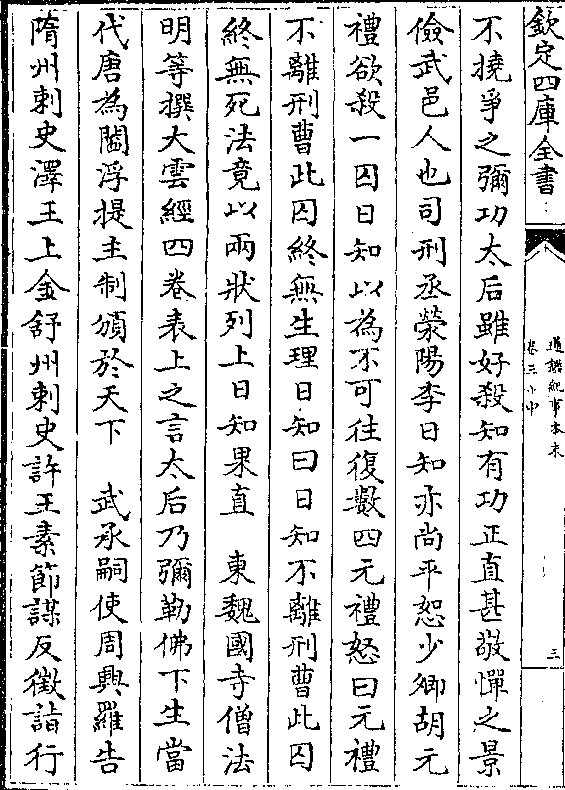 欽定四庫全書
通鑑紀事本末
卷三十中
三
不撓爭之彌功太后雖好殺知有功正直甚敬憚之景
儉武邑人也司刑丞滎陽李日知亦尚平恕少卿胡元
禮欲殺一囚日知以為不可往復數四元禮怒曰元禮
不離刑曹此囚終無生理日知曰日知不離刑曹此囚
終無死法竟以兩狀列上日知果直　東魏國寺僧法
明等撰大雲經四卷表上之言太后乃彌勒佛下生當
代唐為閻浮提主制頒於天下　武承嗣使周興羅告
隋州刺史澤王上金舒州刺史許王素節謀反徵詣行